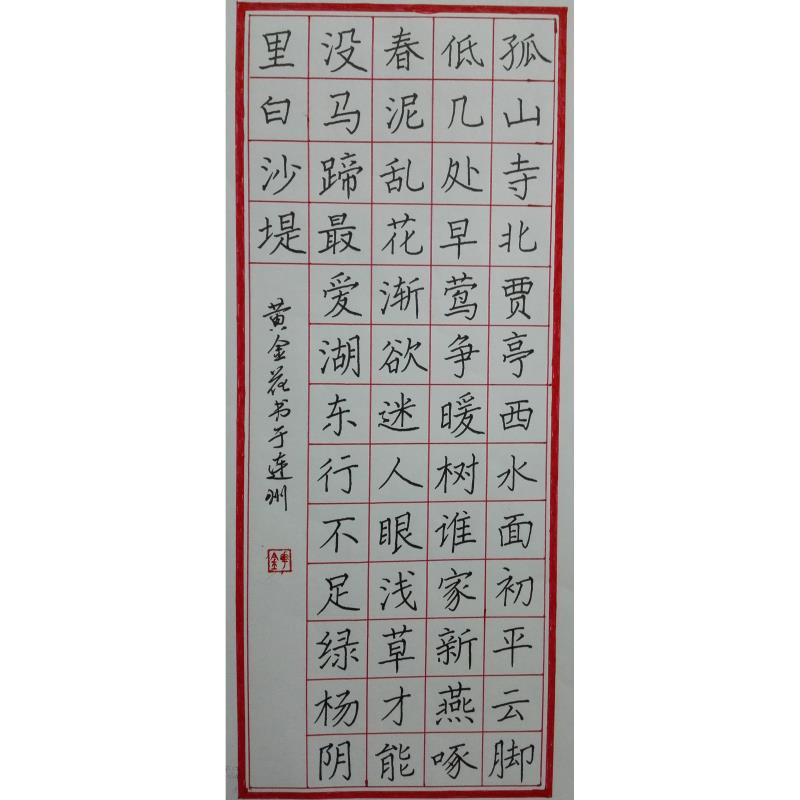 孤山寺北贾亭西水面初平云脚
低几处早莺争暖树谁家新燕啄
春泥乱花渐欲迷人眼浅草才能
没马蹄最爱湖东行不足绿杨阴
里白沙堤
黄金花书于连州